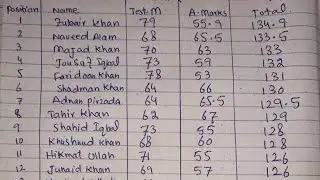 Position Name Test.M A.Marks Total
1 Zubair Khan 79 55.9 134.9
2 Naveed Alam 68 65.5 133.5
3 Majad Khan 70 63 133
4 Iqbal 73 59 132
5 Faridoon Khan 78 53 131
6 Shadman Khan 64 66 130
7 Adnan Pirzada 64 65.5 129.5
8 Tahir Khan 62 67 129
9 Shahid Iqbal 73 55 128
10 Khushnud Khan 68 60 128
11 Hikmat Ullah 71 55 126
12 Junaid Khan 69 57 126